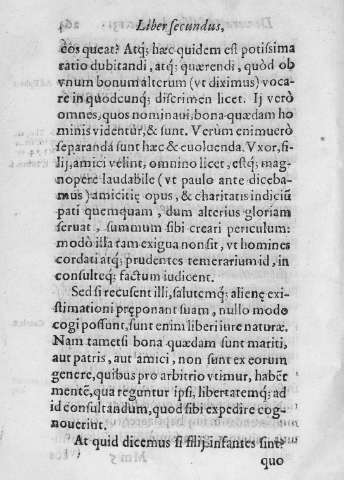 Liber secundus,
eos queat? Atq; hæc quidem est potissima
ratio dubitandi, atq; quærendi, quòd ob
vnum bonum alterum (vt diximus) voca-
re in quodcunq; discrimen licet. Ij verò
omnes, quos nominaui, bona quædam ho
minis videntur, & sunt. Verùm enimuerò
separanda sunt hæc & euoluenda. Vxor, fi-
lij, amici velint, omnino licet, estq; mag-
nopere laudabile (vt paulo ante diceba-
mus) amicitię opus, & charitatis indiciū
pati quemquam, dum alterius gloriam
seruat, summum sibi creari periculum:
modò illa tam exigua non sit, vt homines
cordati atq; prudentes temerarium id, in
consulteq; factum iudicent.
Sed si recusent illi, salutemq; alienę exi-
stimationi pręponant suam, nullo modo
cogi possunt, sunt enim liberi iure naturæ.
Nam tametsi bona quædam sunt mariti,
aut patris, aut amici, non sunt ex eorum
genere, quibus pro arbitrio vtimur, habēt
mentē, qua reguntur ipsi, libertatemq; ad
id consultandum, quod sibi expedire cog-
nouerint.
At quid dicemus si filij infantes sint?
Mm 5
quo